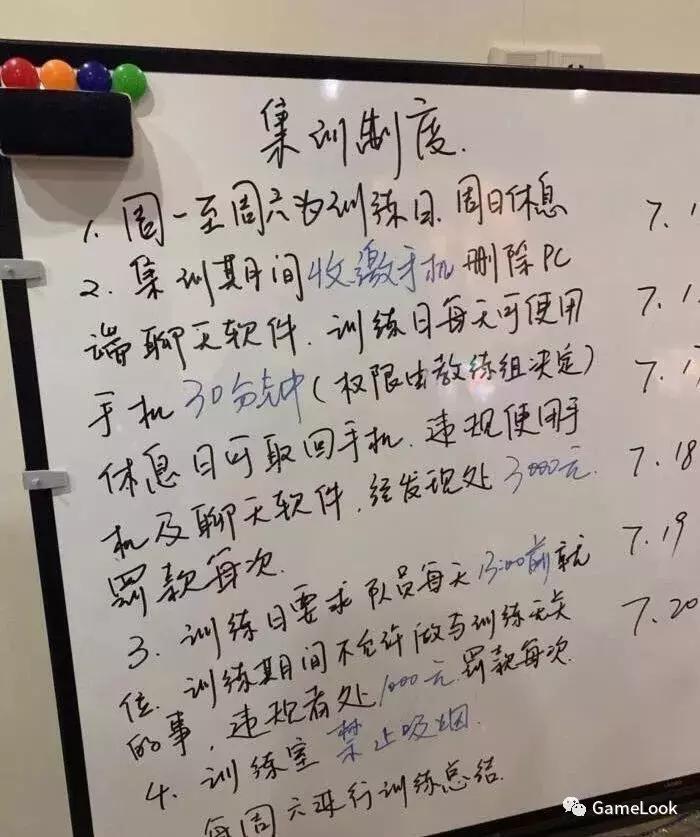 集训制度.
1. 周一至周六为训练日. 周日休息
2. 集训期间收缴手机 删除PC
端聊天软件. 训练日每天可使用
手机30分钟(权限由教练组决定)
休息日可取回手机. 违规使用手
机及聊天软件. 经发现处3000元.
罚款每次.
3. 训练日要求队员每天13:00前就
位. 训练期间不允许做与训练无关
的事, 违规者处1000元.罚款每次.
4. 训练室 禁止吸烟.
每周六进行训练总结.
7.18
7.19
7.20
GameLook